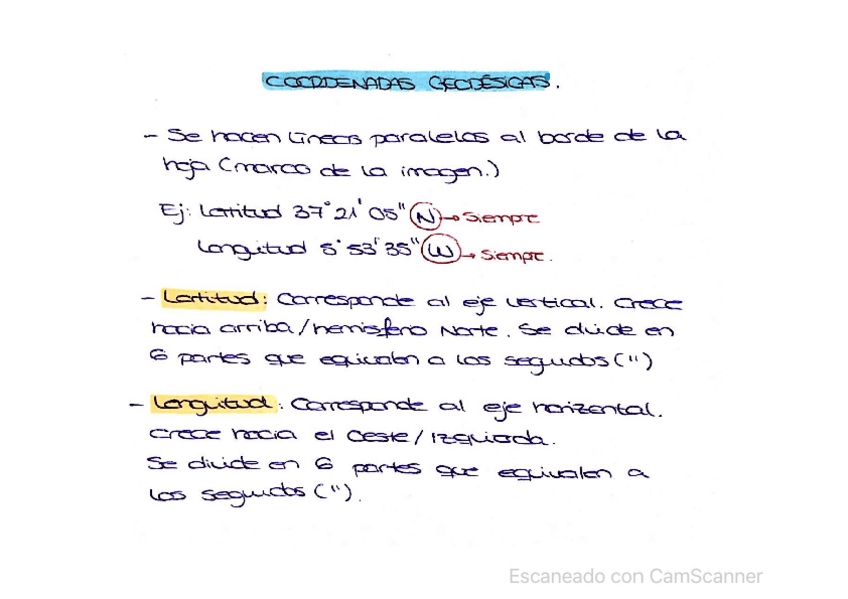 COORDENADAS GEODÉSICAS.
- Se hacen líneas paralelas al borde de la
hoja (marco de la imagen.)
Ej: Latitud 37° 21' 05" N → Siempre
Longitud 5° 53' 35" W → Siempre.
- Latitud: Corresponde al eje vertical. Crece
hacia arriba/hemisferio Norte. Se divide en
6 partes que equivalen a los segudos (")
- Longuitud: Corresponde al eje horizontal.
Crece hacia el Oeste/Izquierda.
Se divide en 6 partes que equivalen a
los segudos (").
Escaneado con CamScanner